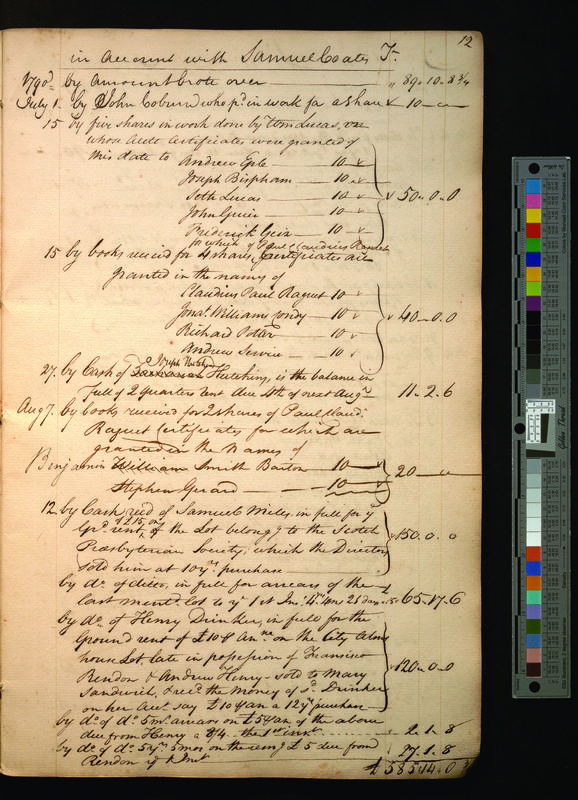 12
in account with Samuel Coates Tr.
1790. by amount brote over 89.10.8 3/4
July 1. by John Coburn who pd in work for a share 10
15 by five shares in work done by Thoms Lucas, one
whose acct Certificates were granted of
this date to Andrew Eple 10
Joseph Bispham 10
Seth Lucas 10
John Guier 10
50.0.0
Frederick Geir 10
for which of Paul Claudius Raguet
15 by books received for 4 shares, Certificates are
granted in the names of
Claudius Paul Raguet 10
Jonan. Williams 10
40.0.0
Richard Potter 10
Andrew Servin 10
Joseph Hutchins
27. by Cash of Hutchins, is the balance in
full of 2 quarters rent due 4th of next Augt. 11.2.6
Aug 7. by books received for 2 shares of Paul Claud:
Raguet Certificates for which are
granted in the names of
Benjamin William Smith Barton 10
20
Stephen Girard 10
12 by Cash recd of Samuel Miles, in full for ye
Grd rent, of £15 on of the Lot belongg to the Scotch
150.0.0
Presbyterian Society, which the Directors
sold him at 10 yrs purchase
by do. of ditto, in full for arrears of the
last mentd. Lot to ye 1st Inst. 4 yrs 4 ms 21 days 65.17.6
by do. of Henry Drinker, in full for the
Ground rent of £10 & Ann. on the City Alms
house Lot late in possession of Francisco
Rendon & Andrew Henry sold to Mary
120.0.0
Sandwich, & recd. the Money of sd. Drinker
on her Acct say £10 & an a 12 yrs purchase
by do. of do. 5 ms. arrears on £5 & an. of the above
due from Henry a 8/4 the 1st inst. 2.1.8
by do. of do. 5 yrs. 5 mos on the remg £5 due from 27.1.8
Rendon
£585.14.0